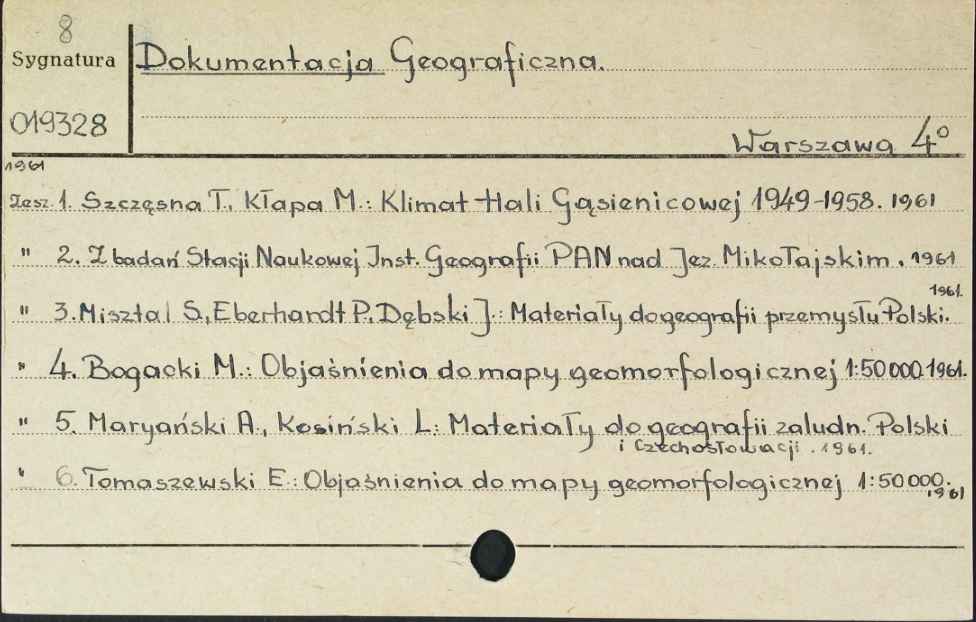 8
Sygnatura
Dokumentacja Geograficzna.
019328
Warszawa 4°
1961
Zesz. 1. Szczęsna T., Kłapa M.: Klimat Hali Gąsienicowej 1949-1958. 1961
" 2. Z badań Stacji Naukowej Inst. Geografii PAN nad Jez. Mikołajskim. 1961
" 3. Misztal S., Eberhardt P., Dębski J.: Materiały do geografii przemysłu Polski. 1961.
" 4. Bogacki M.: Objaśnienia do mapy geomorfologicznej 1:50000. 1961.
" 5. Maryański A., Kosiński L.: Materiały do geografii zaludn. Polski
i Czechosłowacji. 1961.
" 6. Tomaszewski E.: Objaśnienia do mapy geomorfologicznej 1:50000. 1961